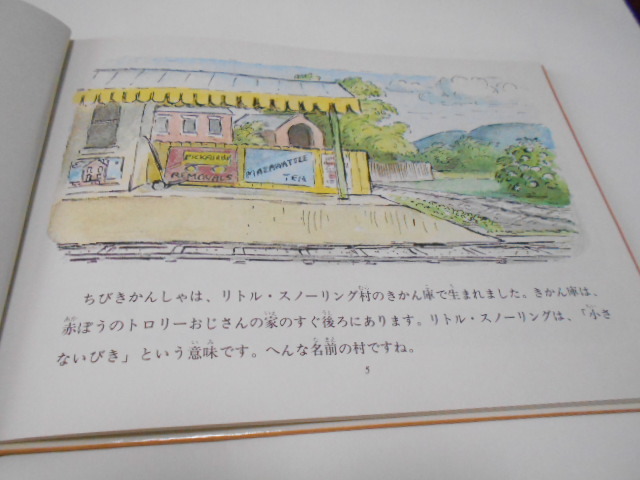 PICKFORDS
REMOVALS
MAZAWATTEE
TEA
ちびきかんしゃは、リトル・スノーリング村のきかん庫で生まれました。きかん庫は、
赤ぼうのトロリーおじさんの家のすぐ後ろにあります。リトル・スノーリングは、「小さ
ないびき」という意味です。へんな名前の村ですね。
5